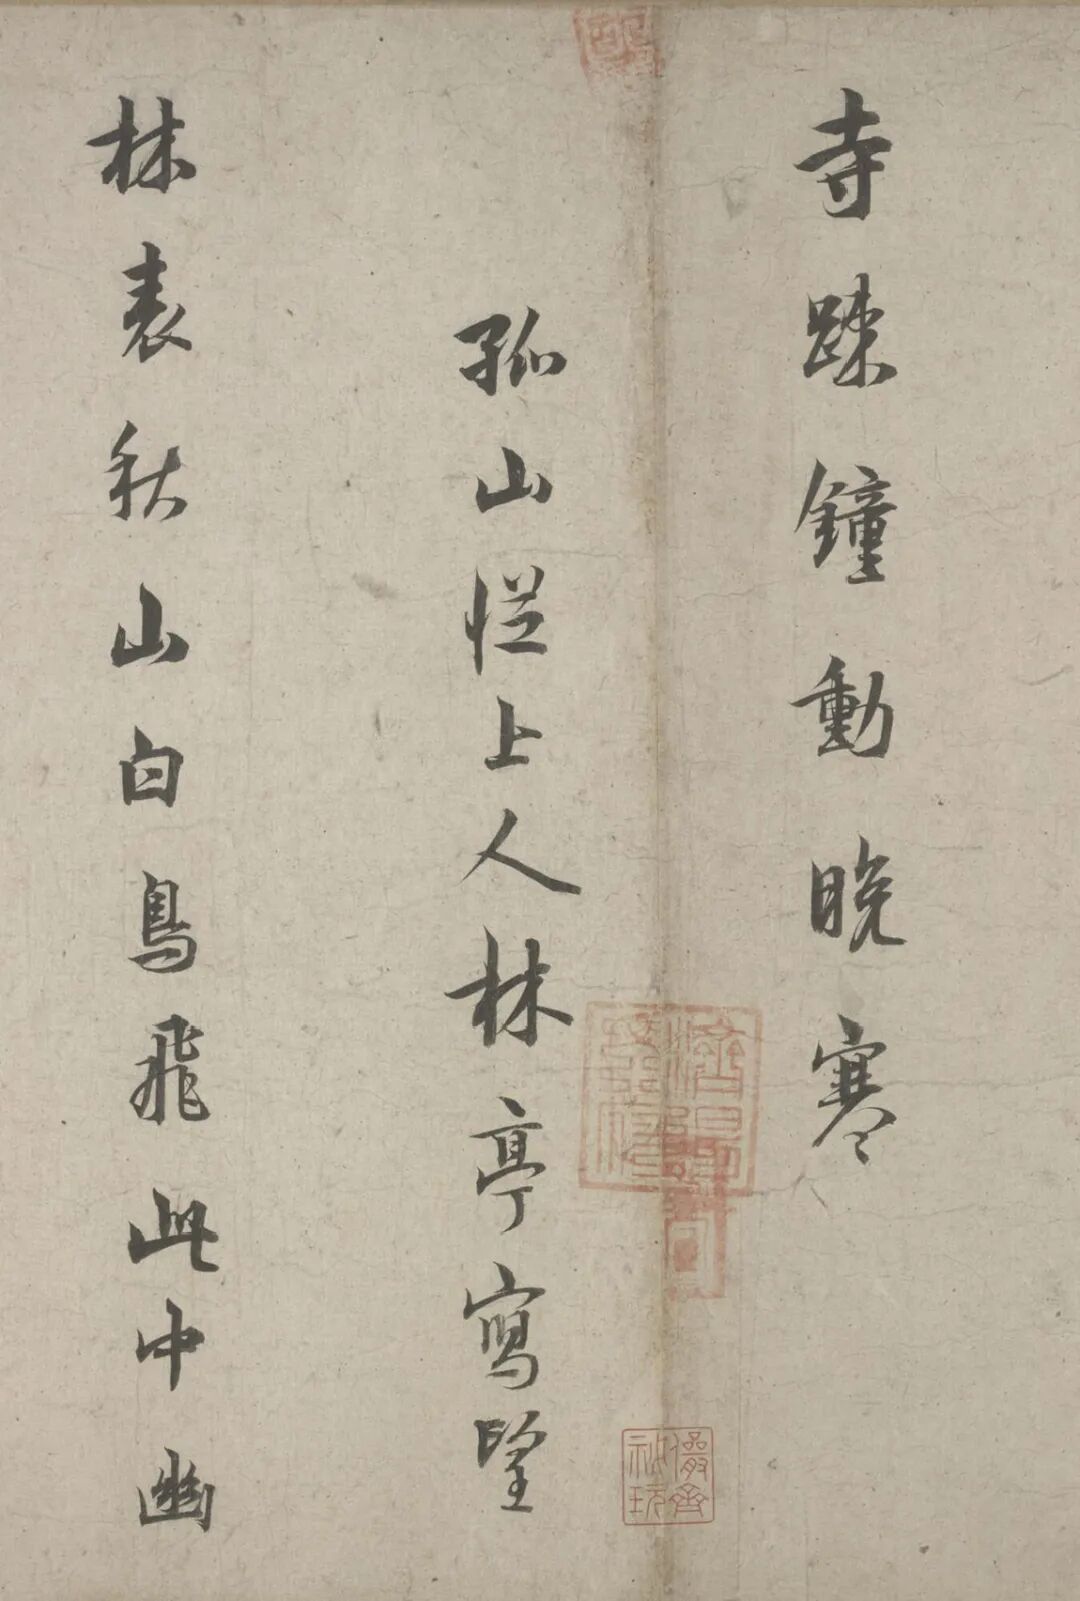 寺踈鐘動晚寒
孤山從上人林亭寫望
林表秋山白鳥飛此中幽
儼齋
祕玩